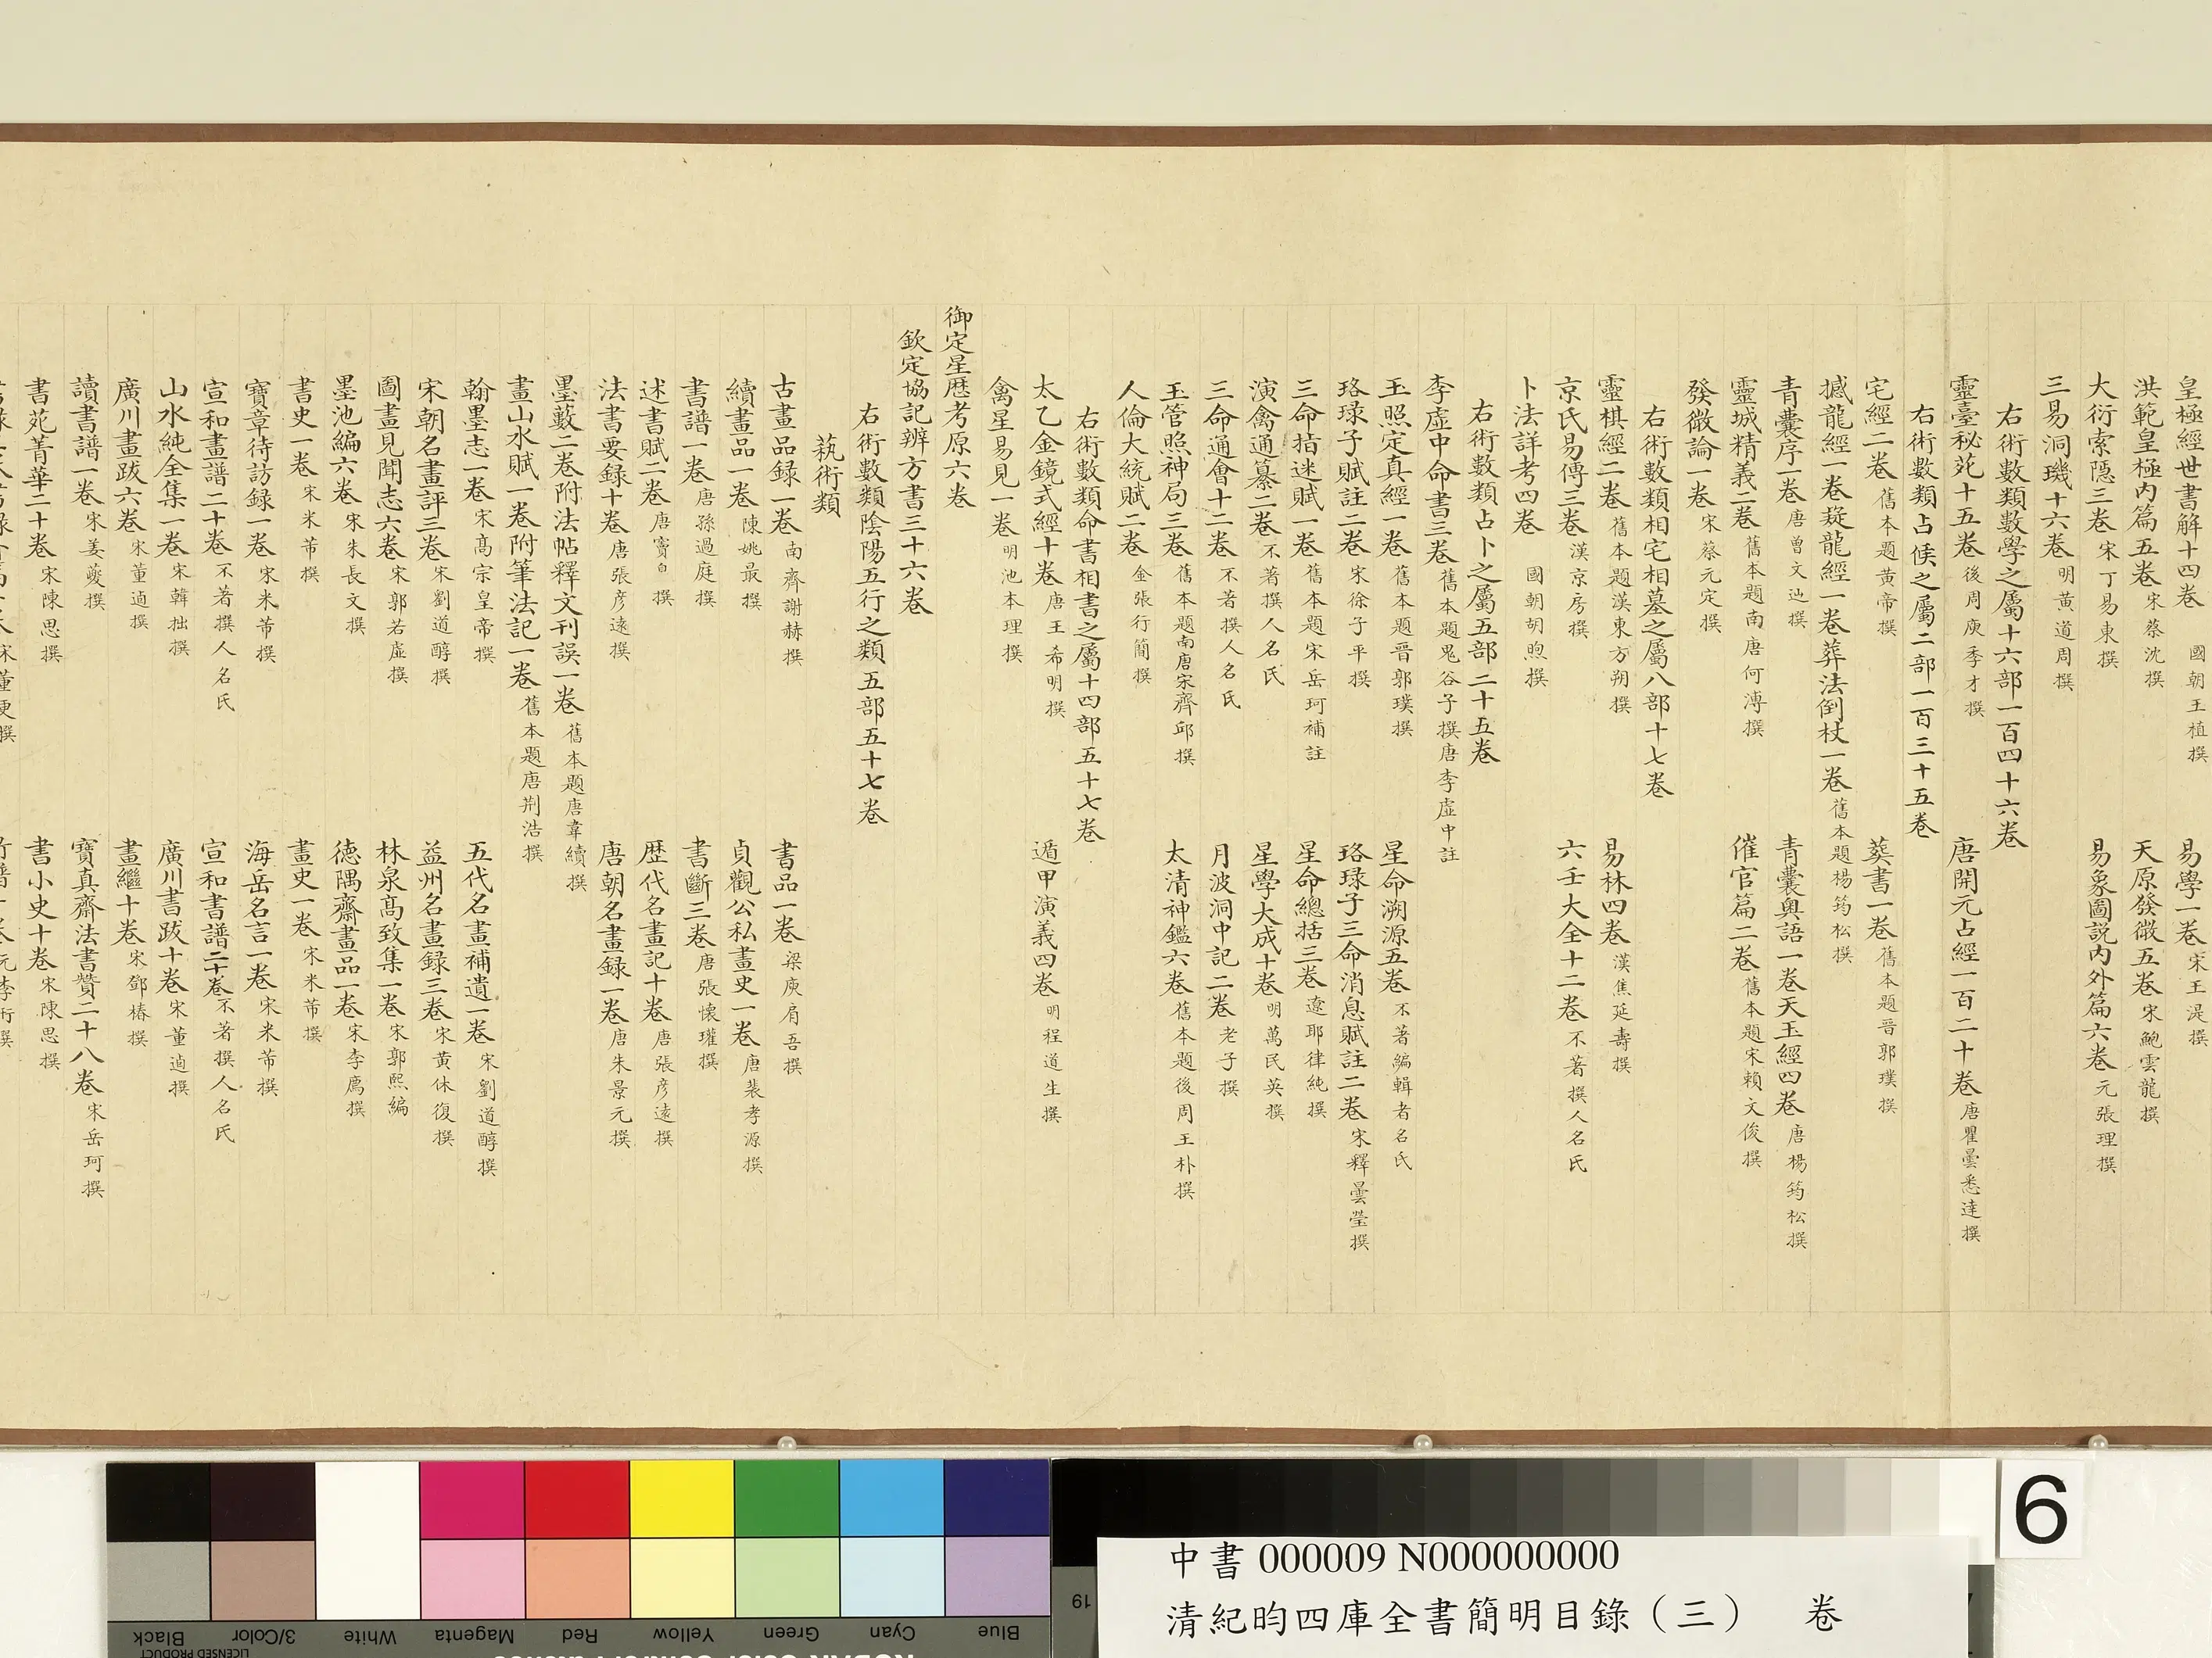 皇極經世書解十四卷 國朝王植撰 易學一卷 宋王湜撰
洪範皇極內篇五卷 宋蔡沈撰 天原發微五卷 宋鮑雲龍撰
大衍索隱三卷 宋丁易東撰 易象圖説內外篇六卷 元張理撰
三易洞璣十六卷 明黃道周撰
右術數類數學之屬十六部一百四十六卷
靈臺秘苑十五卷 後周庾季才撰 唐開元占經一百二十卷 唐瞿曇悉達撰
右術數類占候之屬二部一百三十五卷
宅經二卷 舊本題黃帝撰 葬書一卷 舊本題晉郭璞撰
撼龍經一卷疑龍經一卷葬法倒杖一卷 舊本題楊筠松撰
青囊序一卷 唐曾文迪撰 青囊奧語一卷天玉經四卷 唐楊筠松撰
靈城精義二卷 舊本題南唐何溥撰 催官篇二卷 舊本題宋賴文俊撰
發微論一卷 宋蔡元定撰
右術數類相宅相墓之屬八部十七卷
靈棋經二卷 舊本題漢東方朔撰 易林四卷 漢焦延壽撰
京氏易傳三卷 漢京房撰 六壬大全十二卷 不著撰人名氏
卜法詳考四卷 國朝胡煦撰
右術數類占卜之屬五部二十五卷
李虛中命書三卷 舊本題鬼谷子撰唐李虛中註
玉照定真經一卷 舊本題晉郭璞撰 星命溯源五卷 不著編輯者名氏
珞琭子賦註二卷 宋徐子平撰 珞琭子三命消息賦註二卷 宋釋曇瑩撰
三命指迷賦一卷 舊本題宋岳珂補註 星命總括三卷 遼耶律純撰
演禽通纂二卷 不著撰人名氏 星學大成十卷 明萬民英撰
三命通會十二卷 不著撰人名氏 月波洞中記二卷 老子撰
玉管照神局三卷 舊本題南唐宋齊邱撰 太清神鑑六卷 舊本題後周王朴撰
人倫大統賦二卷 金張行簡撰
右術數類命書相書之屬十四部五十七卷
太乙金鏡式經十卷 唐王希明撰 遁甲演義四卷 明程道生撰
禽星易見一卷 明池本理撰
御定星歷考原六卷
欽定協記辨方書三十六卷
右術數類陰陽五行之類五部五十七卷
蓺術類
古畫品録一卷 南齊謝赫撰 書品一卷 梁庾肩吾撰
續畫品一卷 陳姚最撰 貞觀公私畫史一卷 唐裴孝源撰
書譜一卷 唐孫過庭撰 書斷三卷 唐張懷瓘撰
述書賦二卷 唐竇撰 歷代名畫記十卷 唐張彥遠撰
法書要録十卷 唐張彥遠撰 唐朝名畫録一卷 唐朱景元撰
墨藪二卷附法帖釋文刊誤一卷 舊本題唐韋續撰
畫山水賦一卷附筆法記一卷 舊本題唐荆浩撰
翰墨志一卷 宋高宗皇帝撰 五代名畫補遺一卷 宋劉道醇撰
宋朝名畫評三卷 宋劉道醇撰 益州名畫録三卷 宋黃休復撰
圖畫見聞志六卷 宋郭若虛撰 林泉高致集一卷 宋郭熙編
墨池編六卷 宋朱長文撰 德隅齋畫品一卷 宋李廌撰
書史一卷 宋米芾撰 畫史一卷 宋米芾撰
寶章待訪録一卷 宋米芾撰 海岳名言一卷 宋米芾撰
宣和畫譜二十卷 不著撰人名氏 宣和書譜二十卷 不著撰人名氏
山水純全集一卷 宋韓拙撰 廣川書跋十卷 宋董逌撰
廣川畫跋六卷 宋董逌撰 畫繼十卷 宋鄧椿撰
讀書譜一卷 宋姜夔撰 寶真齋法書贊二十八卷 宋岳珂撰
書苑菁華二十卷 宋陳思撰 書小史十卷 宋陳思撰
6
中書 000009 N000000000
清紀昀四庫全書簡明目錄（三） 卷
Black 3/Color White Magenta Red Yellow Green Cyan Blue
LICENSED PRODUCT
19